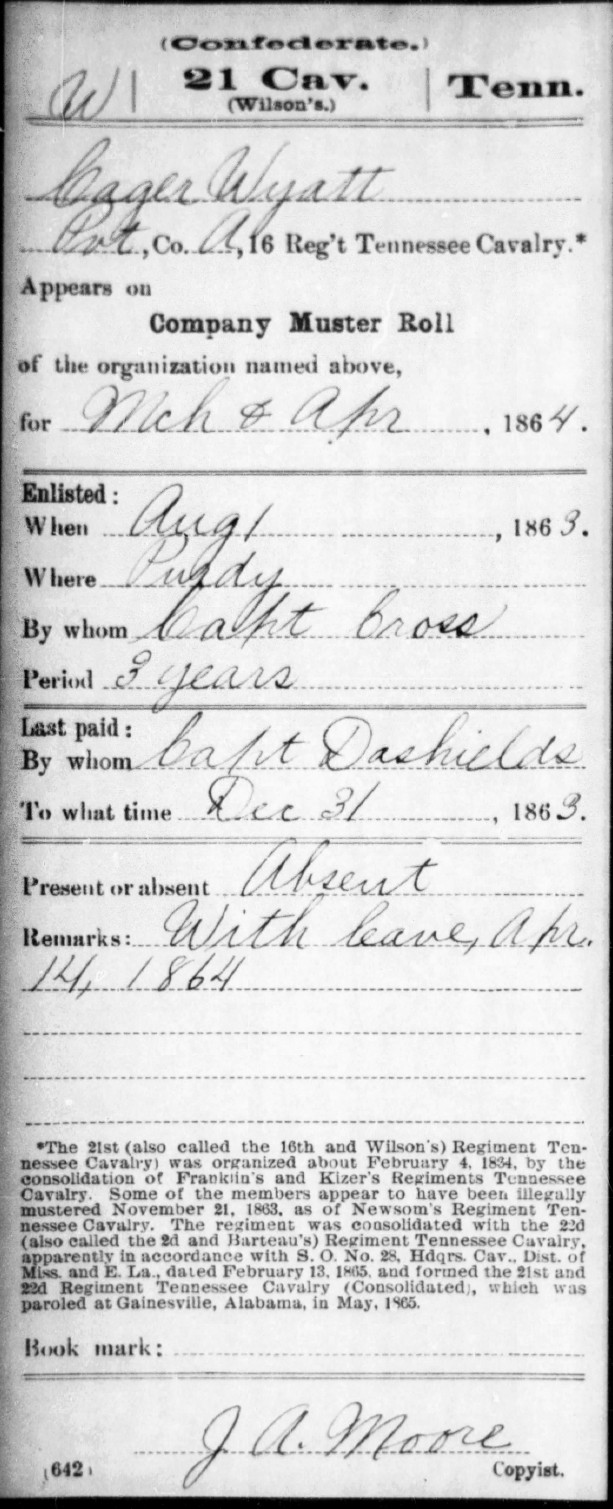 (Confederate.)
W | 21 Cav. | Tenn.
(Wilson's.)
Cager Wyatt
Pvt, Co. A, 16 Reg't Tennessee Cavalry.*
Appears on
Company Muster Roll
of the organization named above,
for Mch & Apr, 1864.
Enlisted:
When Aug 1, 1863.
Where Purdy
By whom Capt Cross
Period 3 years
Last paid:
By whom Capt Dashields
To what time Dec 31, 1863.
Present or absent Absent
Remarks: With leave, Apr.
14, 1864
*The 21st (also called the 16th and Wilson's) Regiment Ten-
nessee Cavalry) was organized about February 4, 1834, by the
consolidation of Franklin's and Kizer's Regiments Tennessee
Cavalry. Some of the members appear to have been illegally
mustered November 21, 1863, as of Newsom's Regiment Ten-
nessee Cavalry. The regiment was consolidated with the 22d
(also called the 2d and Barteau's) Regiment Tennessee Cavalry,
apparently in accordance with S. O. No. 28, Hdqrs. Cav., Dist. of
Miss. and E. La., dated February 13, 1865, and formed the 21st and
22d Regiment Tennessee Cavalry (Consolidated), which was
paroled at Gainesville, Alabama, in May, 1865.
Book mark:
J A. Moore
(642) Copyist.